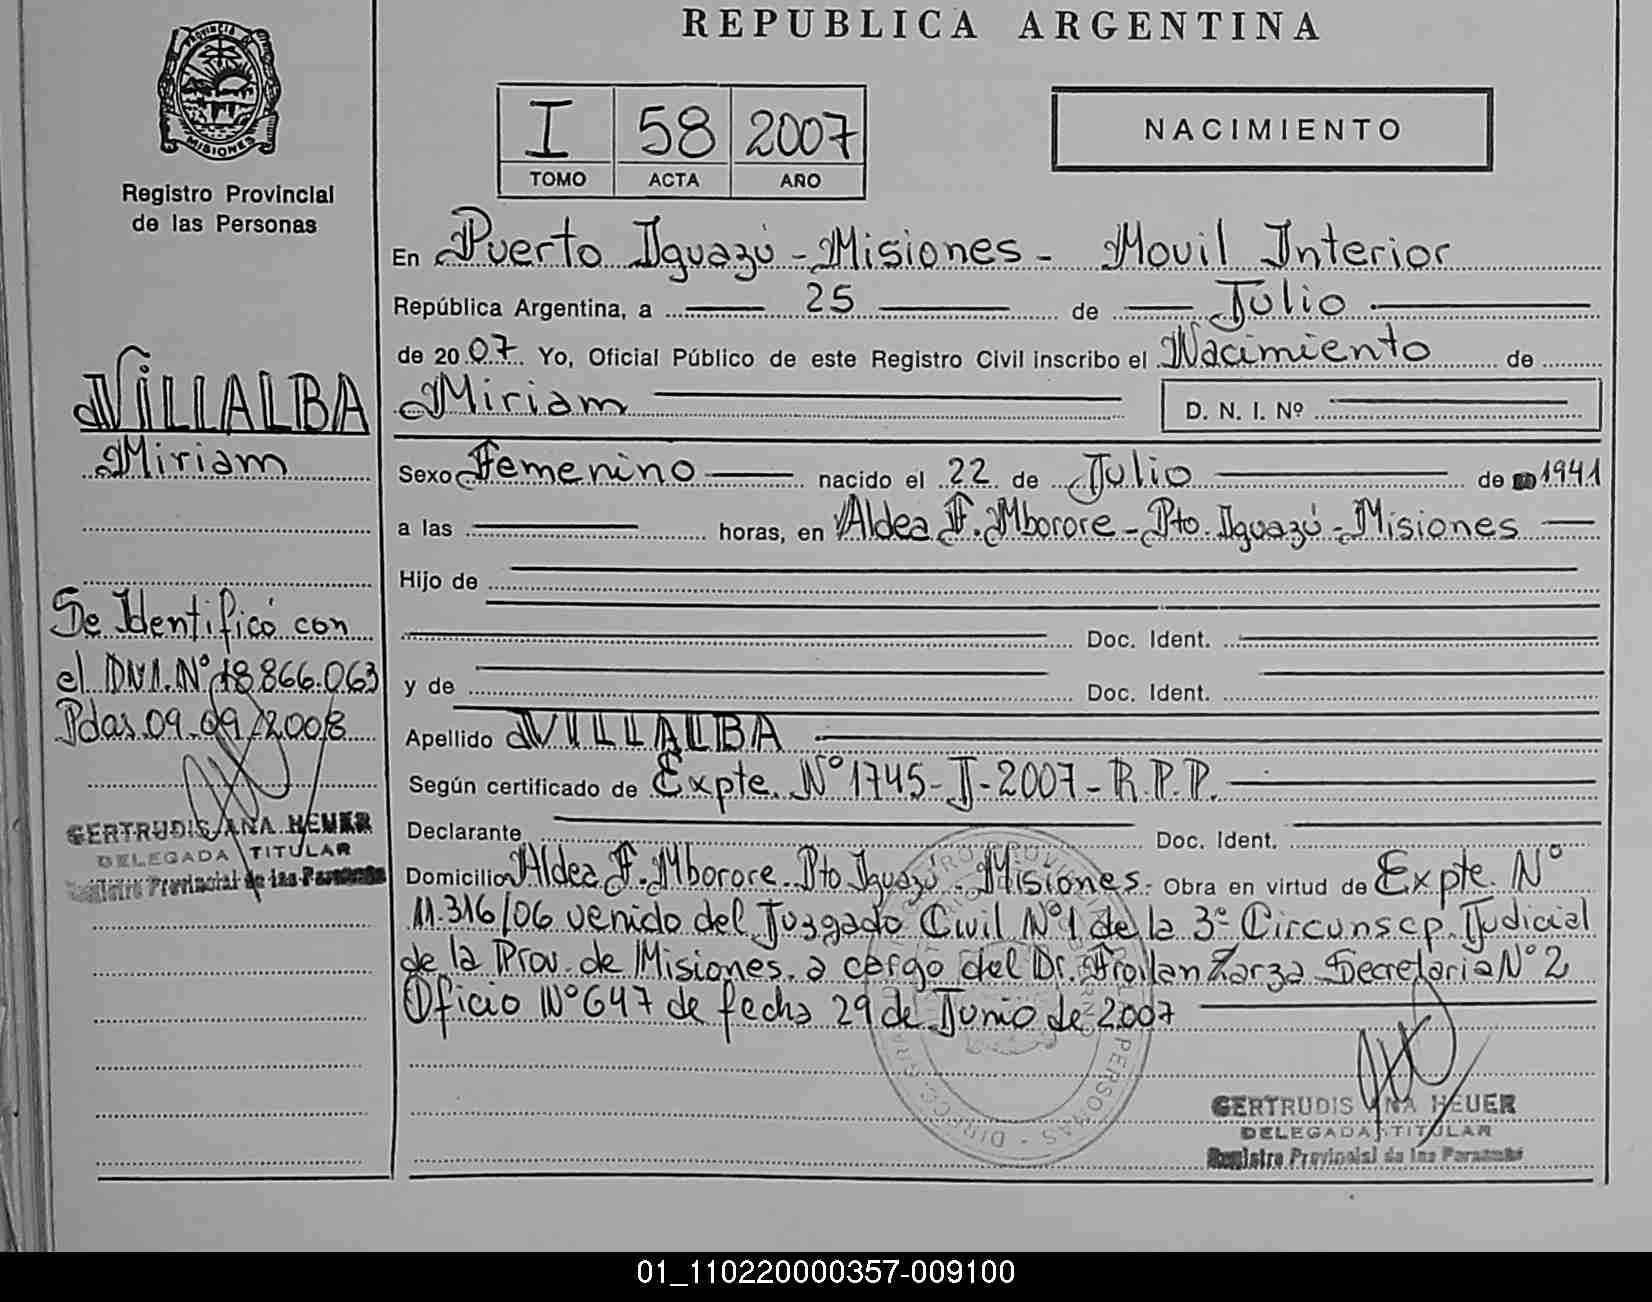 REPUBLICA ARGENTINA
PROVINCIA DE
MISIONES
Registro Provincial
de las Personas
I 58 2007
TOMO ACTA AÑO
NACIMIENTO
En Puerto Iguazú - Misiones - Movil Interior
República Argentina, a 25 de Julio
de 2007 Yo, Oficial Público de este Registro Civil inscribo el Nacimiento de
Miriam D. N. I. Nº
Sexo Femenino nacido el 22 de Julio de 1941
a las horas, en Aldea F. Mborore - Pto. Iguazú - Misiones
Hijo de
Doc. Ident.
y de Doc. Ident.
Apellido VILLALBA
Según certificado de Expte. Nº 1745 - J - 2007 - R.P.P.
Declarante Doc. Ident.
Domicilio Aldea F. Mborore. Pto Iguazú. Misiones. Obra en virtud de Expte. Nº
11.316/06 venido del Juzgado Civil Nº 1 de la 3ª Circunscp. Judicial
de la Prov. de Misiones. a cargo del Dr. Froilan Zarza Secretaria Nº 2
Oficio Nº 647 de fecha 29 de Junio de 2007
GERTRUDIS ANA HEUER
DELEGADA TITULAR
Registro Provincial de las Personas
VILLALBA
Miriam
Se Identificó con
el DNI. Nº 18.866.063
Pdas 09.09/2008
GERTRUDIS ANA HEUER
DELEGADA TITULAR
Registro Provincial de las Personas
01_110220000357-009100